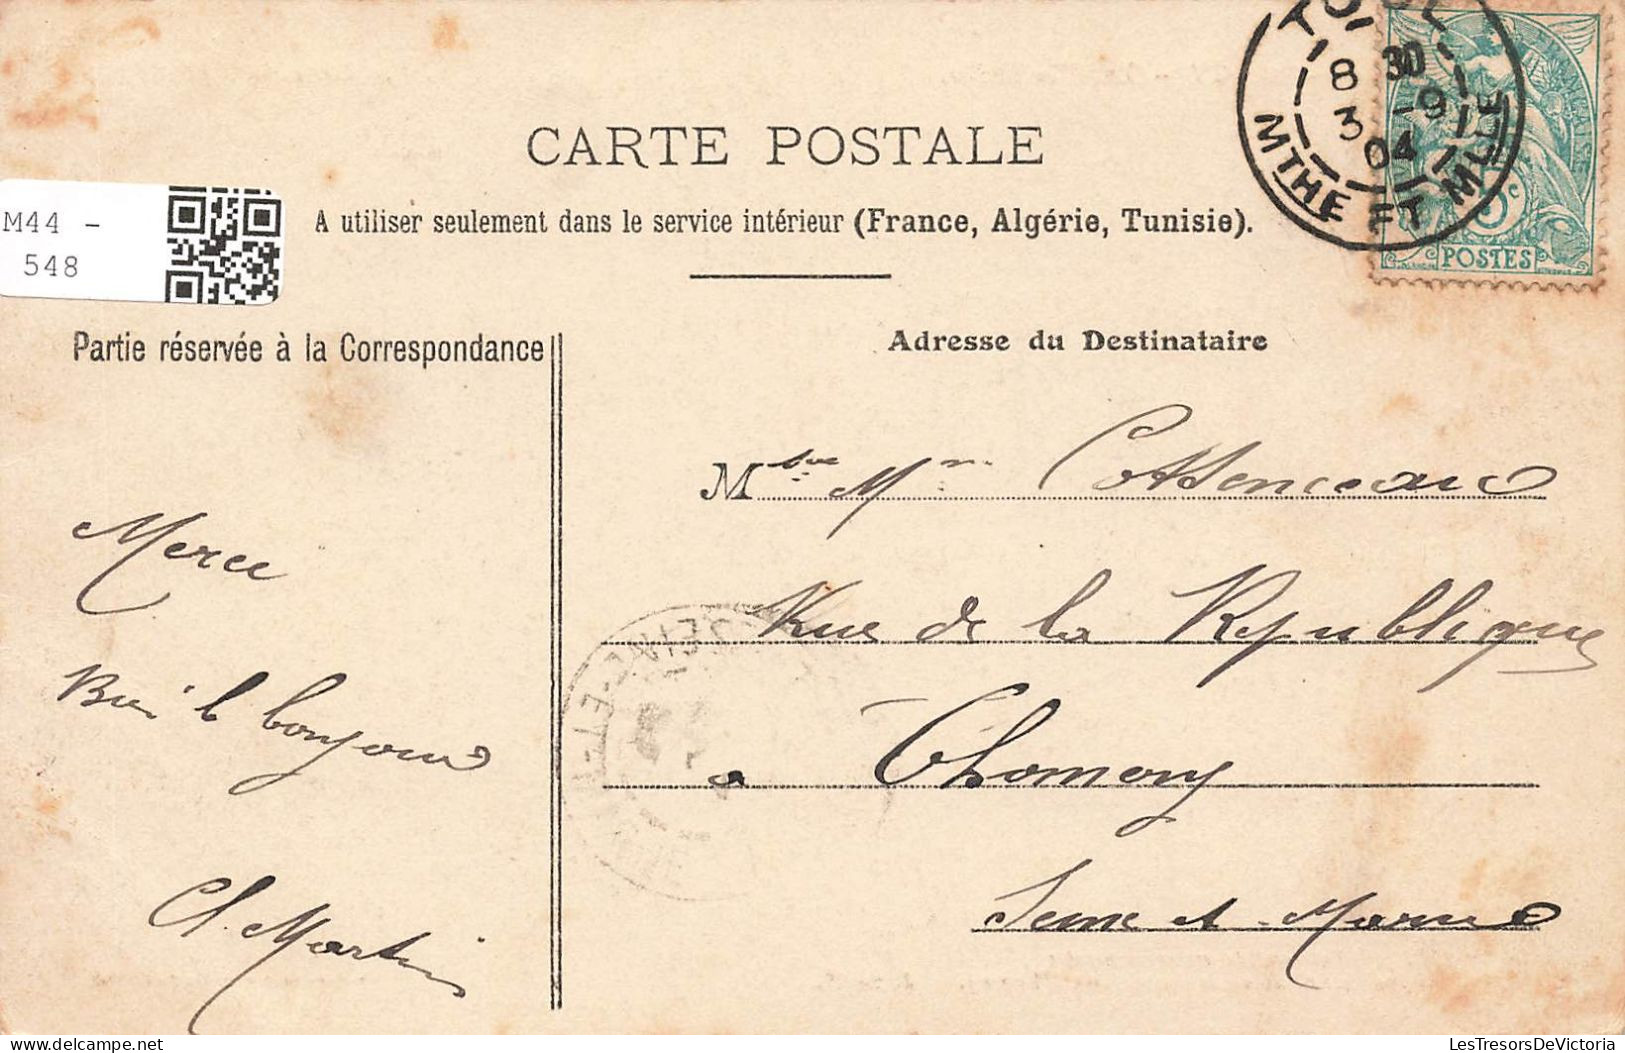 CARTE POSTALE
A utiliser seulement dans le service intérieur (France, Algérie, Tunisie).
M44 -
548
TOUL
8 30
3 -9
04
MTHE ET MLLE
5c
POSTES
Partie réservée à la Correspondance
Adresse du Destinataire
Merci
Bien le bonjour
Ch. Martin
M
Rue de la République
a Thomery
Seine et Marne
SEINE-ET-
LesTresorsDeVictoria
delcampe.net